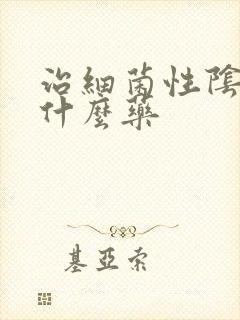 治細菌性陰
什麼藥
基亞索